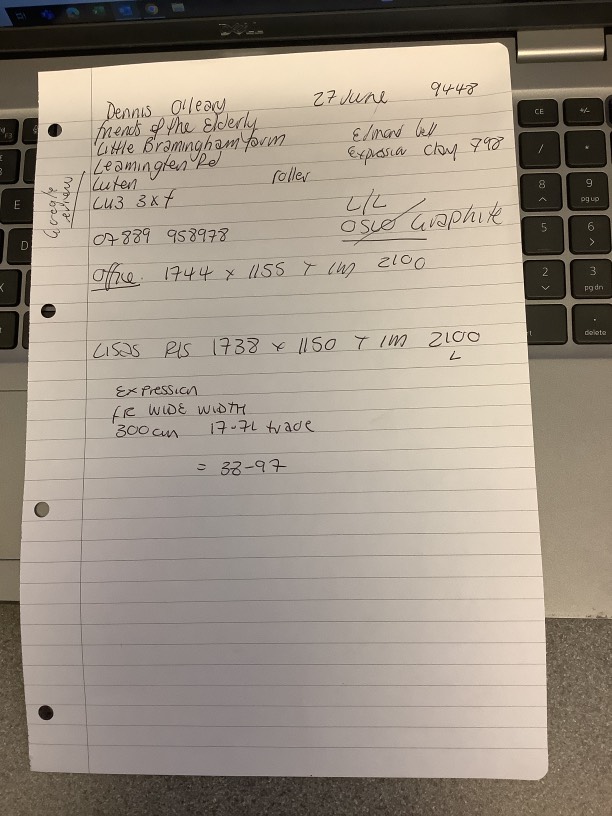 Dennis O'Leary 27 June 9448
friends of the Elderly
Little Bramingham farm
Leamington Rd
Luton
LU3 3XF
roller
Expression Clay 798
L/L
Oslo Graphite
Google review
07889 958978
Office 1744 x 1155 T 1M 2100
LISAS RIS 1738 x 1150 T 1M 2100
L
EXPRESSION
FR WIDE WIDTH
300cm 17-71 trade
= 38-97
DELL